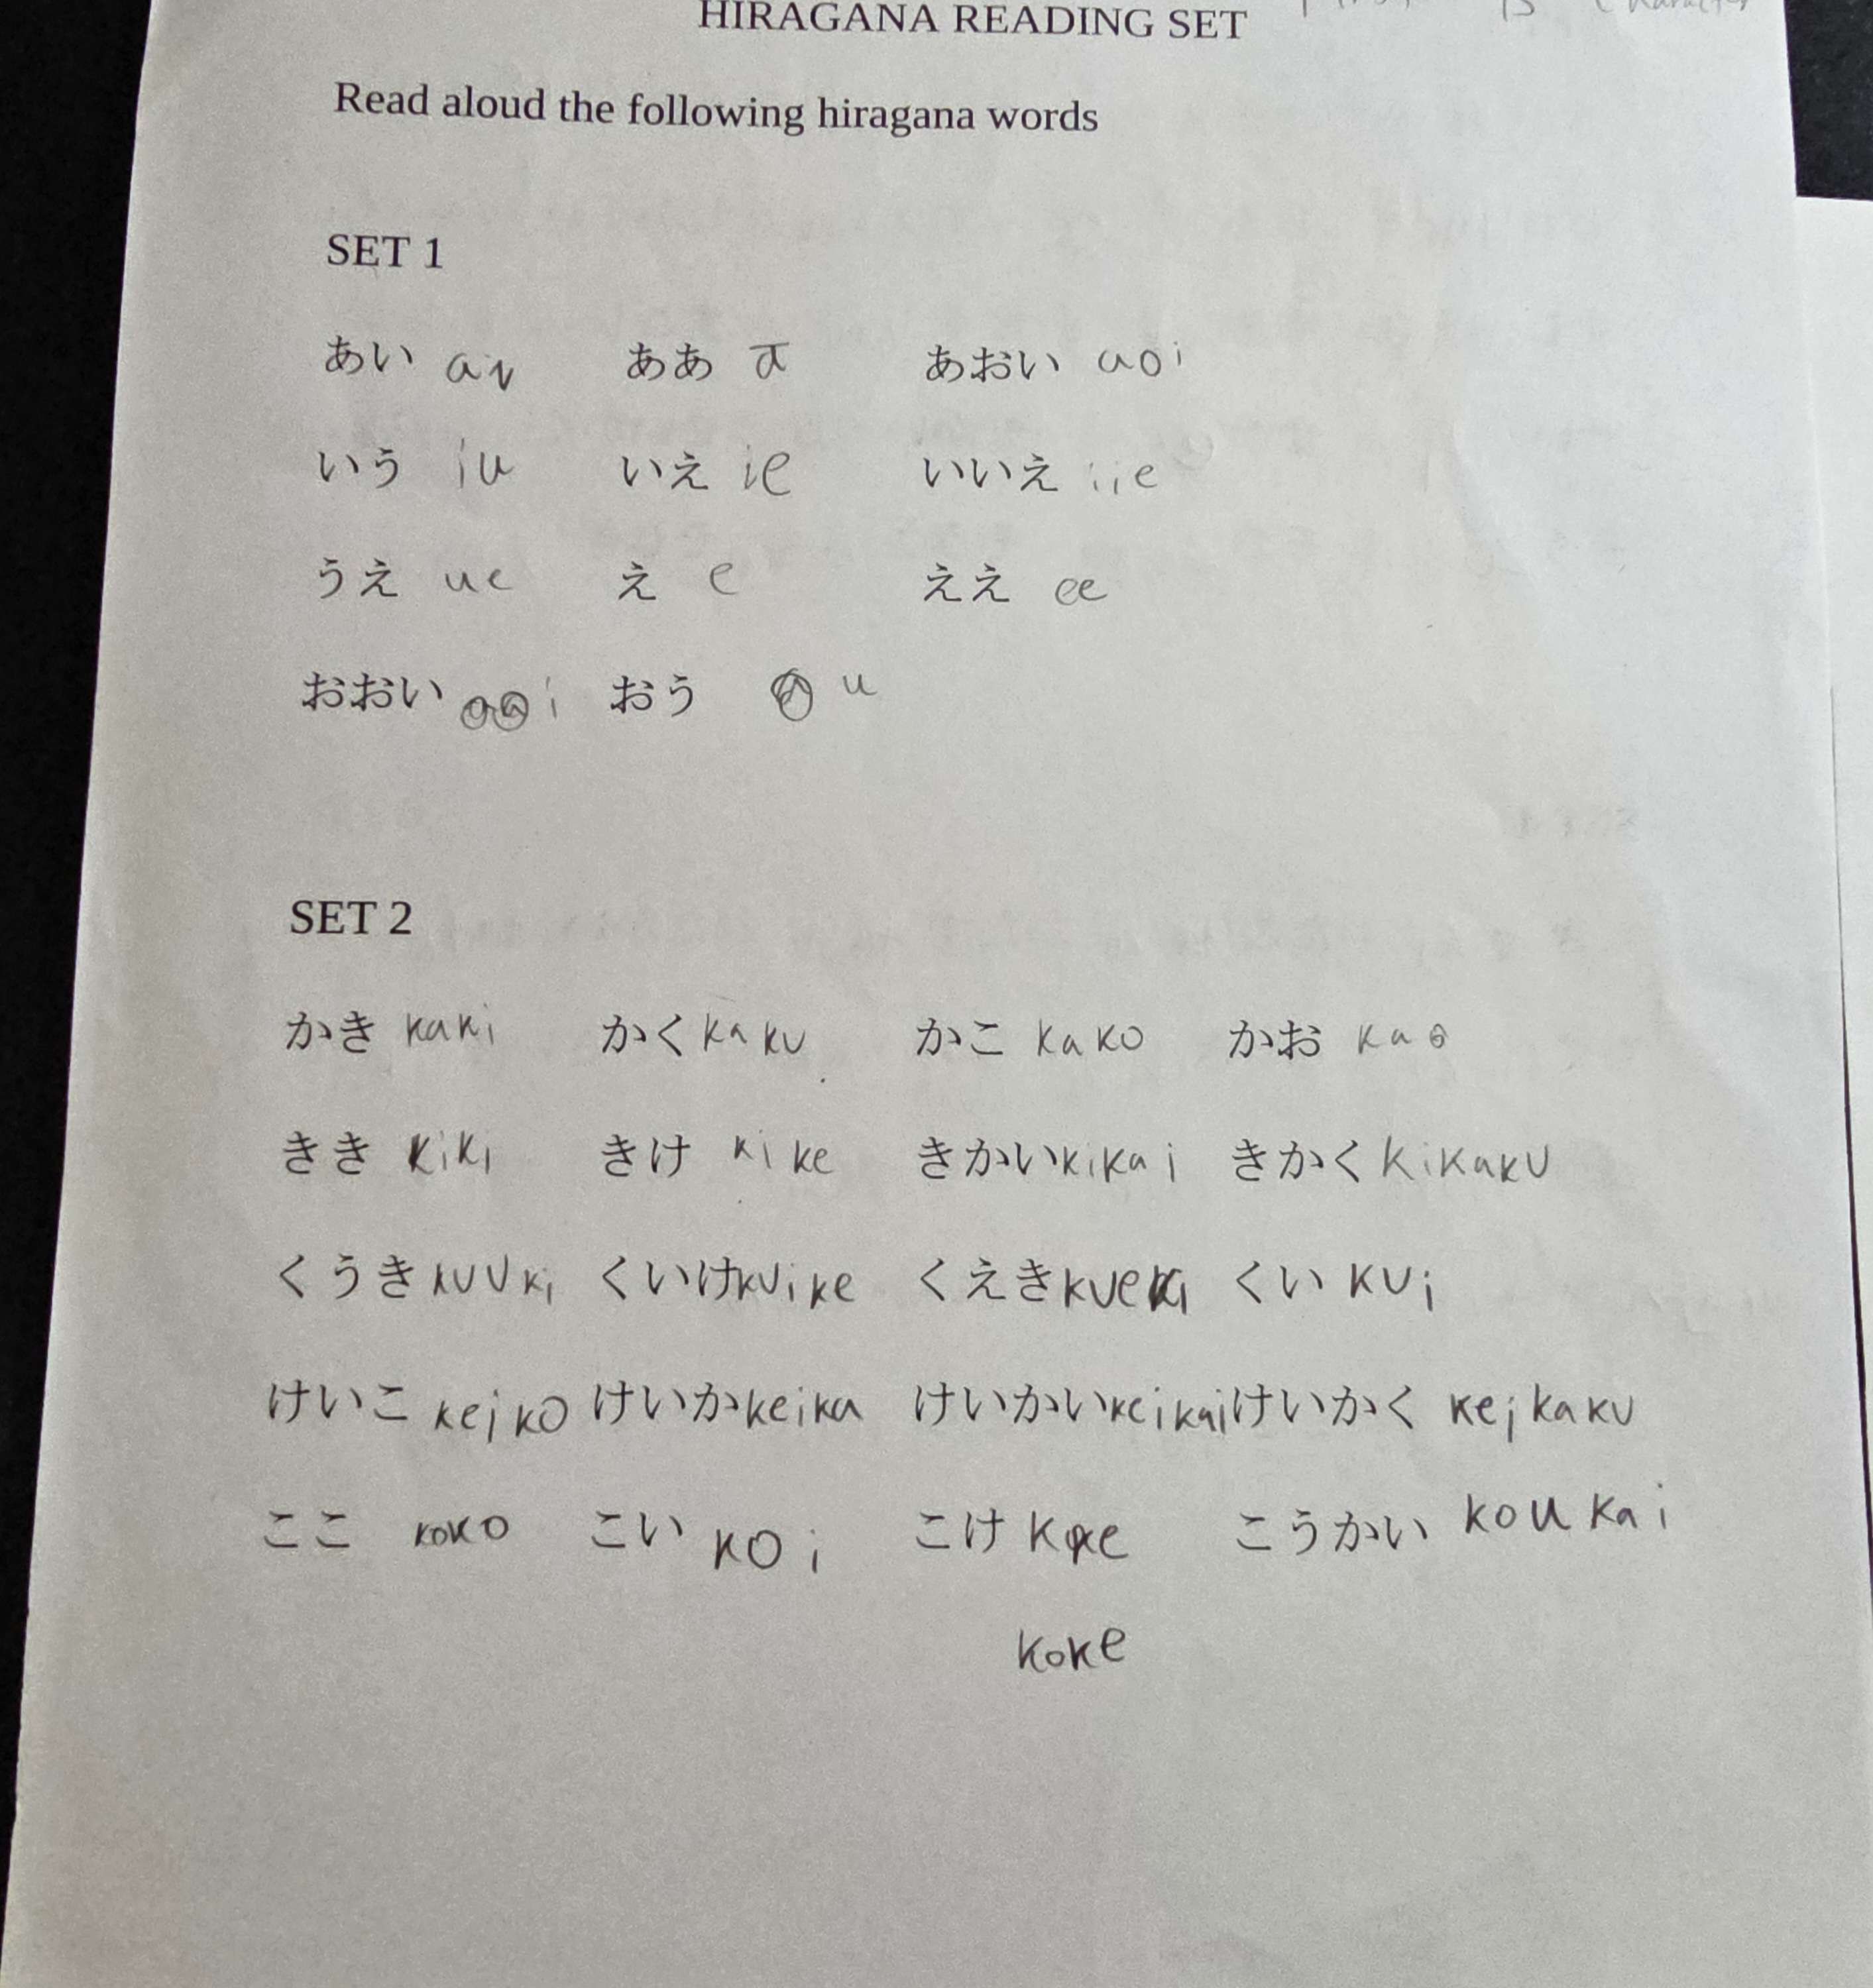 HIRAGANA READING SET is character
Read aloud the following hiragana words
SET 1
あい ai ああ ā あおい aoi
いう iu いえ ie いいえ iie
うえ ue え e ええ ee
おおい ooi おう o u
SET 2
かき kaki かく kaku かこ kako かお kao
きき kiki きけ kike きかい kikai きかく kikaku
くうき kuuki くいけ kuike くえき kueki くい kui
けいこ keiko けいか keika けいかい keikai けいかく keikaku
ここ koko こい koi こけ koke こうかい koukai
koke